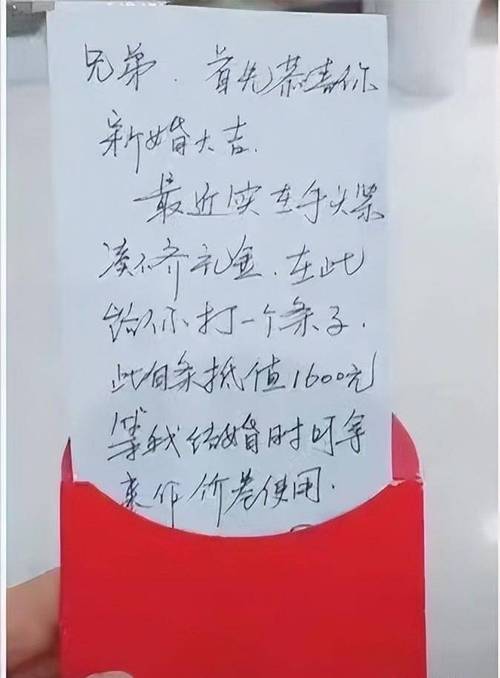 兄弟.首先恭喜你
新婚大吉.
最近实在手头紧
凑不齐礼金.在此
给你打一个条子.
此白条抵值1600元
等我结婚时可拿
来作价卷使用.